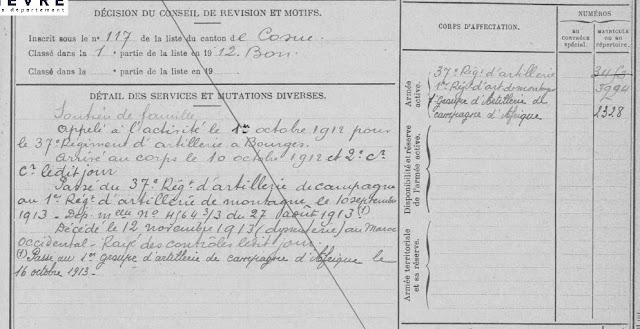 NIÈVRE
le département
DÉCISION DU CONSEIL DE REVISION ET MOTIFS.
Inscrit sous le n° 117 de la liste du canton de Cosne
Classé dans la 1e partie de la liste en 1912. Bon
Classé dans la partie de la liste en 19
DÉTAIL DES SERVICES ET MUTATIONS DIVERSES.
Soutien de famille
Appelé à l'activité le 1er octobre 1912 pour
le 37e Régiment d'artillerie à Bourges.
Arrivé au corps le 10 octobre 1912 et 2e cr
cr ledit jour
Passé du 37e Régt d'artillerie de campagne
au 1er Régt d'artillerie de montagne le 10 septembre
1913 - Dép. melle n° 4564 3/3 du 27 août 1913 (1)
Décédé le 12 novembre 1913 (dysenterie) au Maroc
occidental - Rayé des contrôles ledit jour.
(1) Passé au 1er groupe d'artillerie de campagne d'Afrique le
16 octobre 1913 -
CORPS D'AFFECTATION.
NUMÉROS
AU CONTRÔLE spécial.
MATRICULE ou au répertoire.
Armée active.
37e Régt d'artillerie
1er Régt d'art de montagne 3994
1er groupe d'Artillerie de
campagne d'Afrique 2328
Disponibilité et réserve de l'armée active.
Armée territoriale et sa réserve.